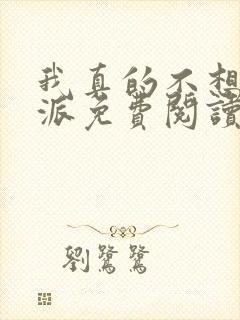 我真的不想
派免費閱讀
劉鷺鷺